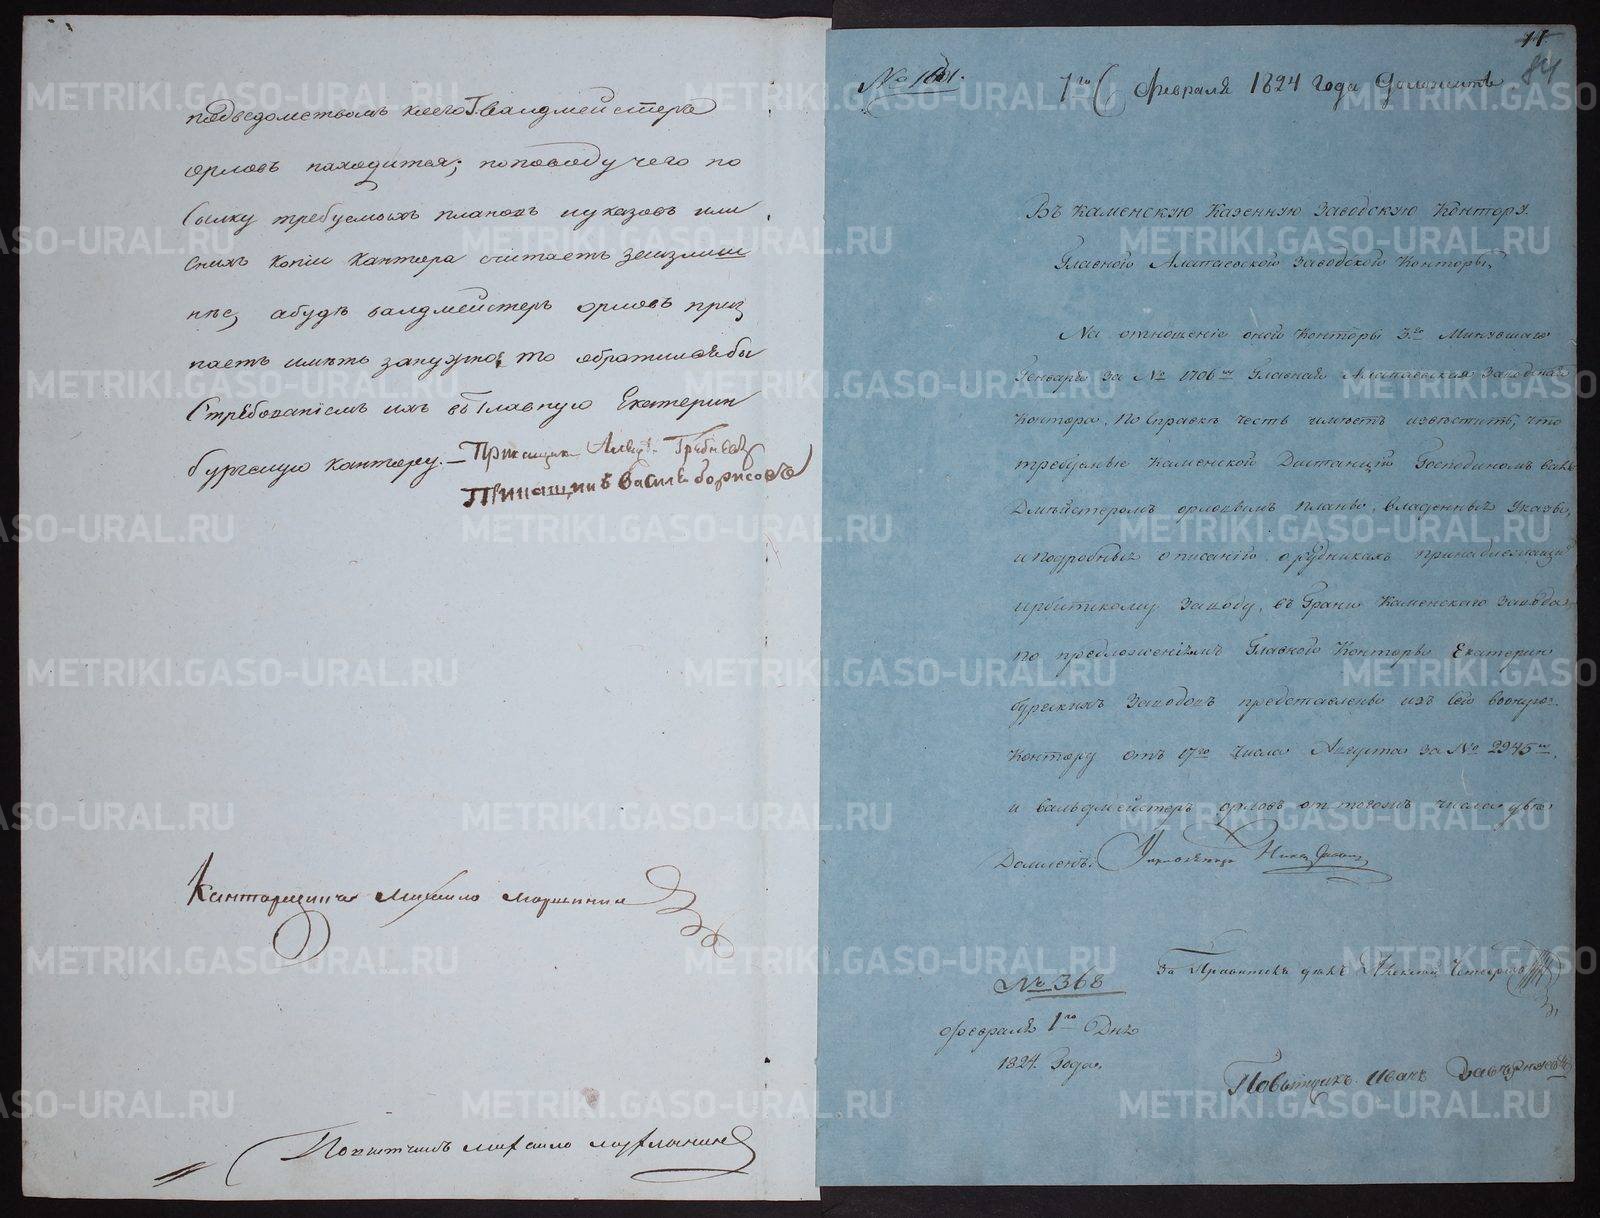 подведомствомъ коего Г. валдмейстеръ
орловъ находится; поповоду чего по
сылку требуемыхъ плановъ иуказовъ или
снихъ копiи кантора считаетъ заизлиш
нѣе, абудѣ валдмейстеръ орловъ приз
наетъ имѣть занужное то обратилсябы
Стребованiемъ ихъ въ Главную Екатерин
бургскую кантору. — Прикащикъ
Прикащикъ Василей борисовъ
Канторщикъ Михаило
Повытчикъ михаило
11
84
1го Февраля 1824 года Доложить
Въ Каменскую Казенную Заводскую Контору.
Главной Алапаевской Заводской Конторы,
На отношенiе оной Конторы 3го Минувшаго
Генваря За № 1706м Главная Алапаевская Заводская
Контора, по Справкѣ честь имѣетъ извѣстить, что
требуемые Каменской Дистанцiи Господиномъ валь
Дмейстеромъ орловымъ планы, владенные Указы,
и подробные описанiи о рудникахъ принадлежащих
ирбитскому Заводу, въ Грани Каменскаго Завода,
по предложенiямъ Главной Конторы Екатерин
бургскихъ Заводовъ представлены изъ сей воную
Контору отъ 17го числа Августа за № 2945м,
и вальдмейстеръ орловъ оттогожъ числа увѣ
Домленъ.
№ 368
Февраля 1го Дня
1824. Года.
За Правителя дѣлъ Алексей
Повытчикъ Иванъ
METRIKI.GASO-URAL.RU